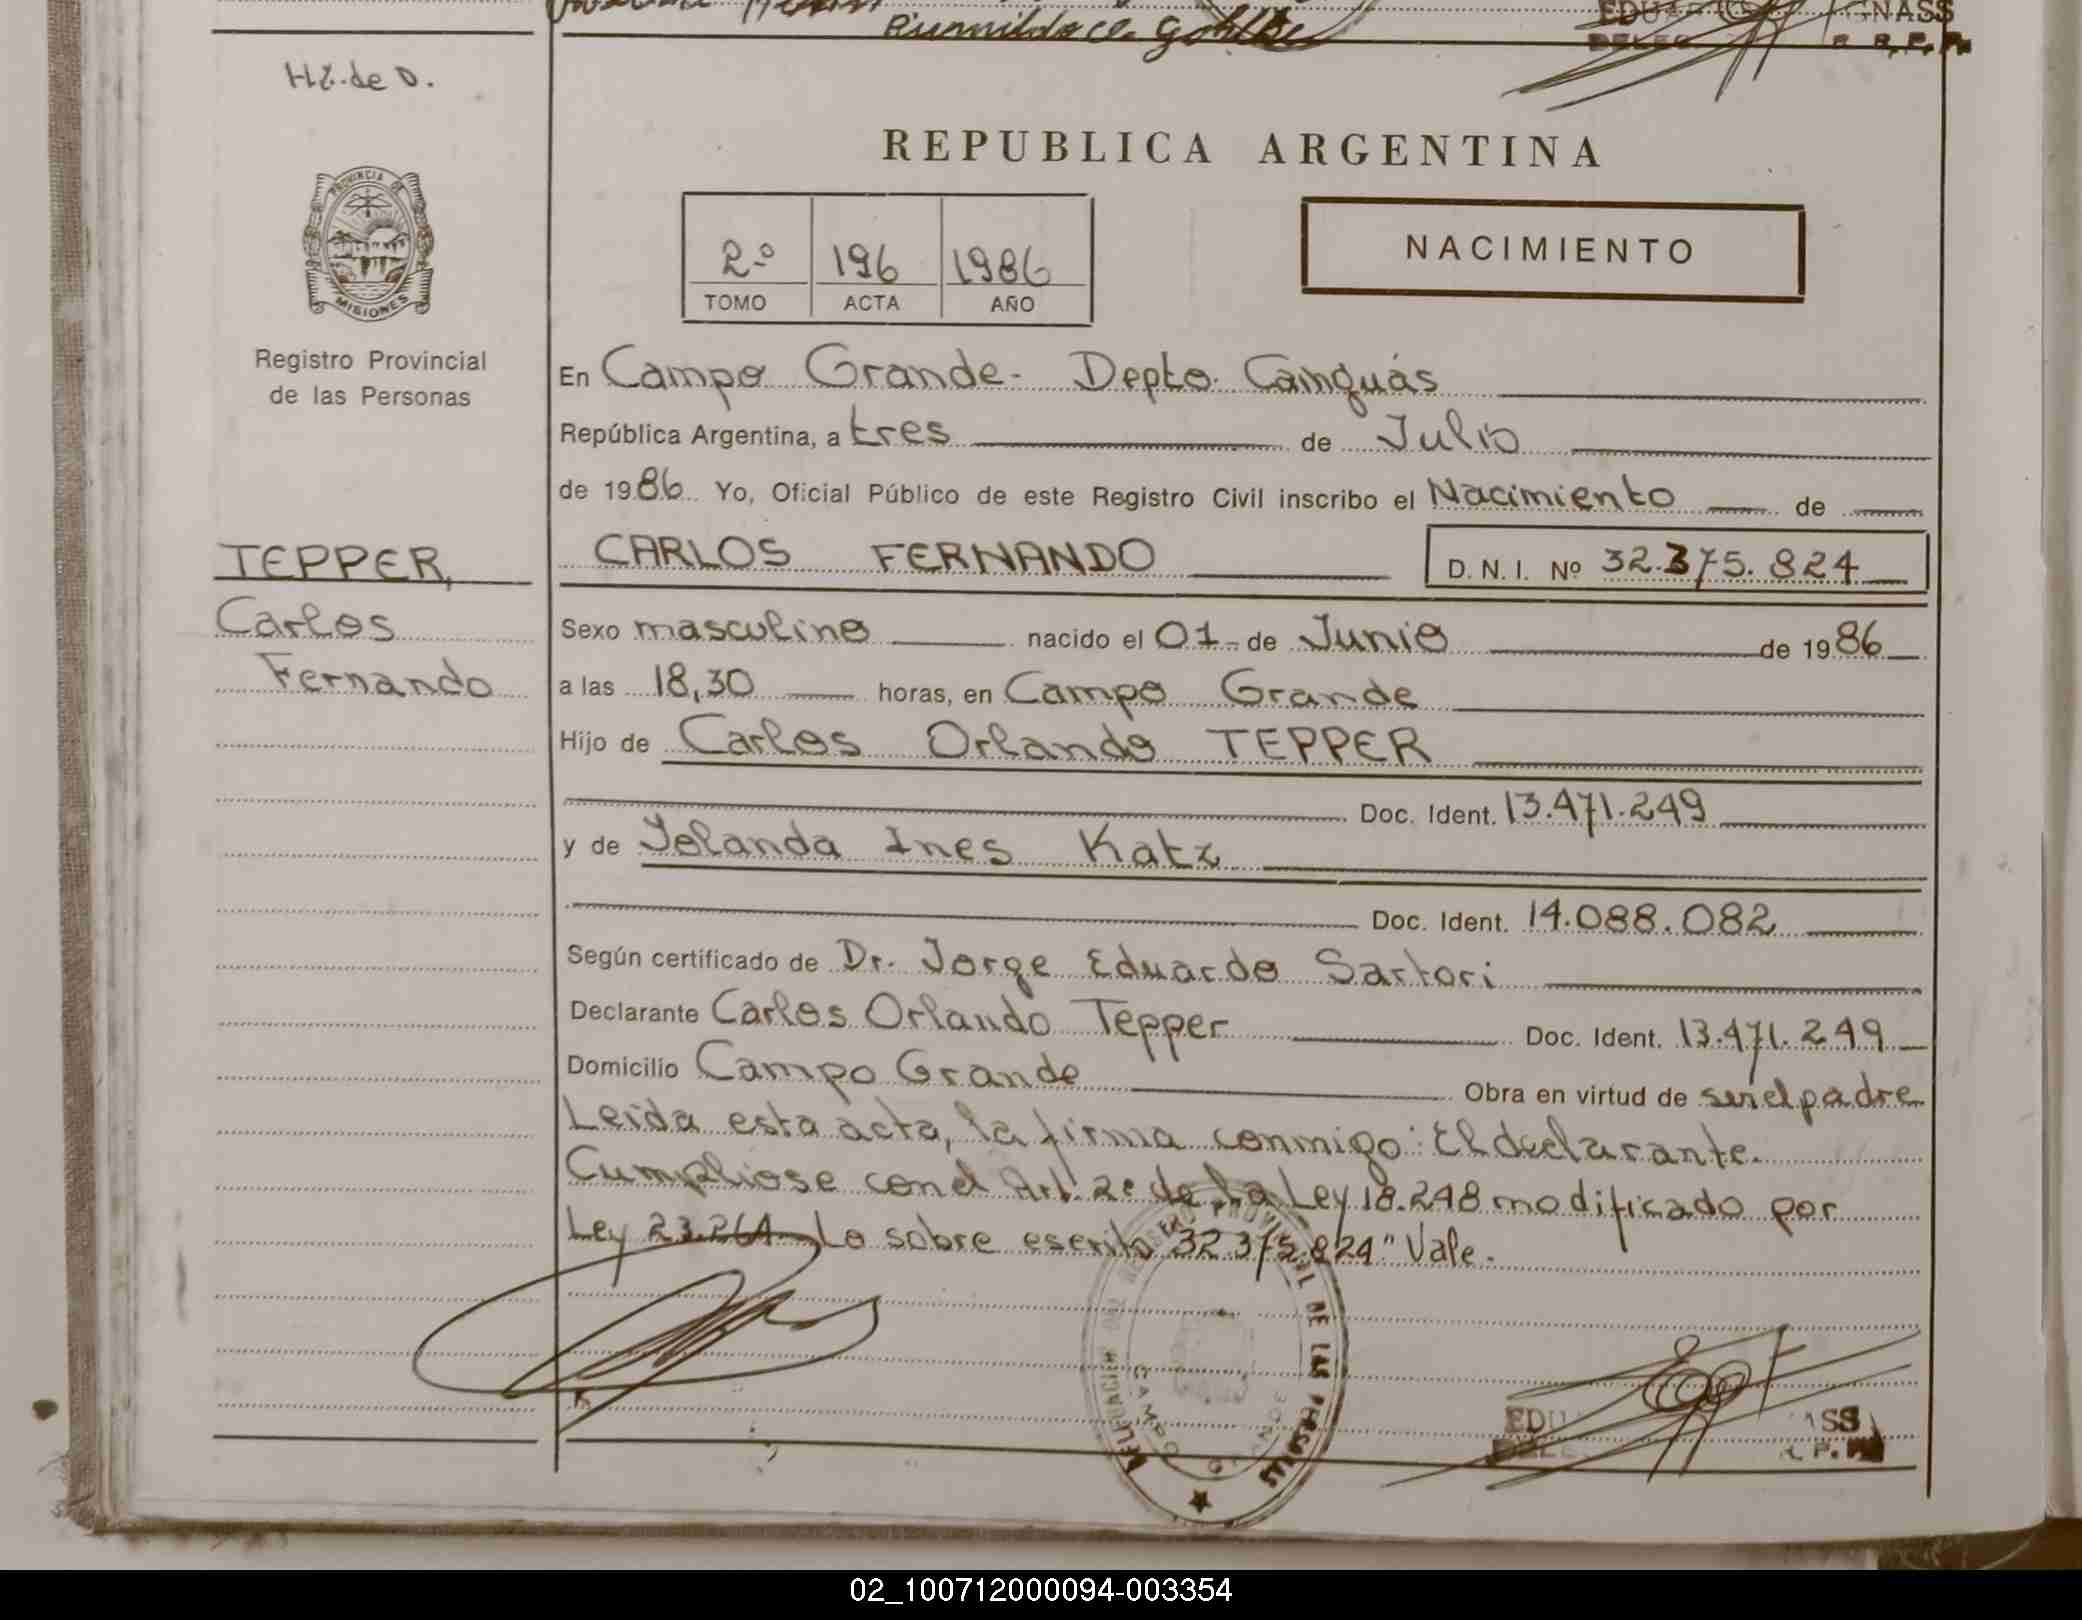 Rumilda C. Gohlke
H7. de D.
REPUBLICA ARGENTINA
PROVINCIA DE
MISIONES
2º 196 1986
TOMO ACTA AÑO
NACIMIENTO
Registro Provincial
de las Personas
En Campo Grande- Depto. Cainguás
República Argentina, a tres de Julio
de 1986 Yo, Oficial Público de este Registro Civil inscribo el Nacimiento de
TEPPER,
Carlos
Fernando
CARLOS FERNANDO D.N.I. Nº 32.375.824
Sexo masculino nacido el 01- de Junio de 1986
a las 18,30 horas, en Campo Grande
Hijo de Carlos Orlando TEPPER
Doc. Ident. 13.471.249
y de Yolanda Ines Katz
Doc. Ident. 14.088.082
Según certificado de Dr. Jorge Eduardo Sartori
Declarante Carlos Orlando Tepper Doc. Ident. 13.471.249
Domicilio Campo Grande Obra en virtud de ser el padre
Leida esta acta, la firma conmigo: El declarante.
Cumpliose con el Art. 2º de la Ley 18.248 modificado por
Ley 23.264 Lo sobre escrito "32.375.824" Vale.-
DELEGACION DEL REGISTRO PROVINCIAL DE LAS PERSONAS
CAMPO GRANDE
02_100712000094-003354